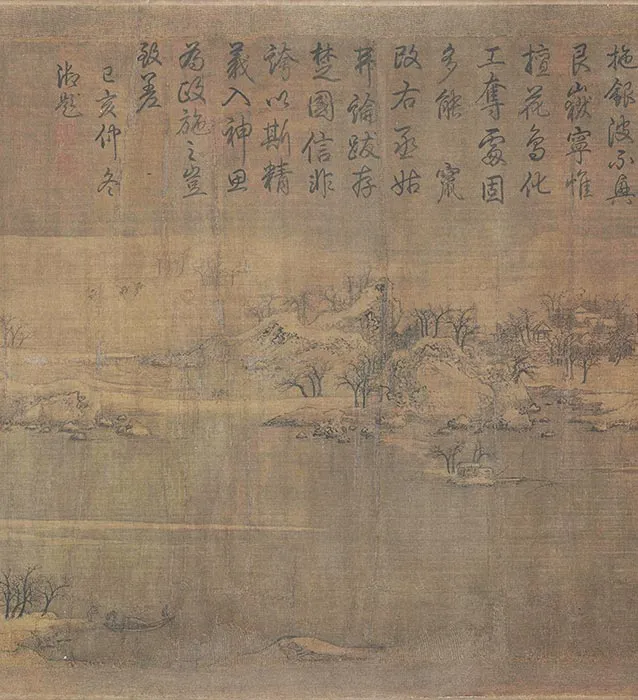 拖銀波不興
艮嶽寧惟
擅花鳥化
工奪處固
多能竄
改右丞姑
並論跋存
楚國信非
誇以斯精
義入神思
為政施之豈
致差
己亥仲冬
御題